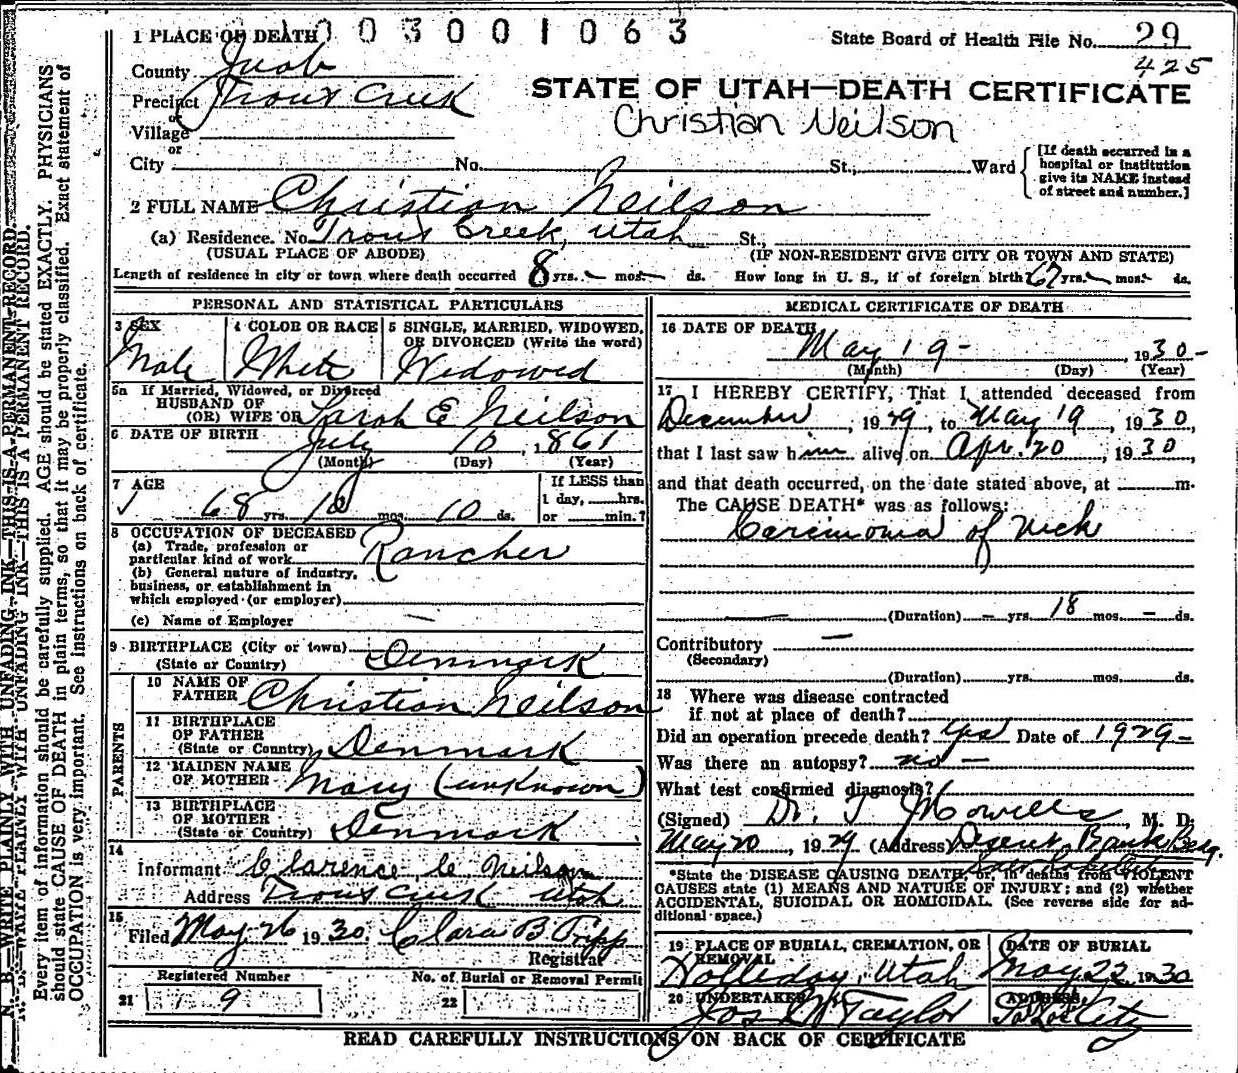 003001063
State Board of Health File No. 29
425
STATE OF UTAH—DEATH CERTIFICATE
Christian Neilson
1 PLACE OF DEATH
County Juab
Precinct Trout Creek
or
Village
or
City No. St., Ward
[If death occurred in a hospital or institution give its NAME instead of street and number.]
2 FULL NAME Christian Neilson
(a) Residence. No. Trout Creek, Utah St.,
(USUAL PLACE OF ABODE) (IF NON-RESIDENT GIVE CITY OR TOWN AND STATE)
Length of residence in city or town where death occurred 8 yrs. - mos. - ds. How long in U. S., if of foreign birth 67 yrs. - mos. - ds.
PERSONAL AND STATISTICAL PARTICULARS
3 SEX
Male
4 COLOR OR RACE
White
5 SINGLE, MARRIED, WIDOWED, OR DIVORCED (Write the word)
Widowed
5a If Married, Widowed, or Divorced
HUSBAND OF
(OR) WIFE OR Sarah E Neilson
6 DATE OF BIRTH July 10, 1861
(Month) (Day) (Year)
7 AGE
68 yrs. 10 mos. 10 ds.
If LESS than
1 day, hrs.
or min.?
8 OCCUPATION OF DECEASED
(a) Trade, profession or
particular kind of work Rancher
(b) General nature of industry,
business, or establishment in
which employed (or employer)
(c) Name of Employer
9 BIRTHPLACE (City or town)
(State or Country) Denmark
PARENTS
10 NAME OF
FATHER Christian Neilson
11 BIRTHPLACE
OF FATHER
(State or Country) Denmark
12 MAIDEN NAME
OF MOTHER Mary (unknown)
13 BIRTHPLACE
OF MOTHER
(State or Country) Denmark
14
Informant Clarence C Neilson
Address Trout Creek Utah
15
Filed May 26 1930. Clara B Tripp
Registrar
Registered Number No. of Burial or Removal Permit
21 9 22
MEDICAL CERTIFICATE OF DEATH
16 DATE OF DEATH
May 19 - , 1930 -
(Month) (Day) (Year)
17 I HEREBY CERTIFY, That I attended deceased from
December, 1929, to May 19, 1930,
that I last saw him alive on Apr. 20, 1930,
and that death occurred, on the date stated above, at m.
The CAUSE DEATH* was as follows:
Carcinoma of Neck
(Duration) - yrs. 18 mos. - ds.
Contributory —
(Secondary)
(Duration) yrs. mos. ds.
18 Where was disease contracted
if not at place of death?
Did an operation precede death? Yes Date of 1929-
Was there an autopsy? no -
What test confirmed diagnosis?
(Signed) Dr. T J Howells, M. D.
May 20, 1929 (Address) Deseret Bank Bldg.
Salt Lake City
*State the DISEASE CAUSING DEATH, or, in deaths from VIOLENT
CAUSES state (1) MEANS AND NATURE OF INJURY; and (2) whether
ACCIDENTAL, SUICIDAL OR HOMICIDAL. (See reverse side for ad-
ditional space.)
19 PLACE OF BURIAL, CREMATION, OR
REMOVAL
Holladay, Utah
DATE OF BURIAL
May 22 1930
20 UNDERTAKER
Jos Wm Taylor
ADDRESS
Salt Lake City
READ CAREFULLY INSTRUCTIONS ON BACK OF CERTIFICATE
N. B.—WRITE PLAINLY WITH UNFADING INK—THIS IS A PERMANENT RECORD.
Every item of information should be carefully supplied. AGE should be stated EXACTLY. PHYSICIANS
should state CAUSE OF DEATH in plain terms, so that it may be properly classified. Exact statement of
OCCUPATION is very important. See instructions on back of certificate.